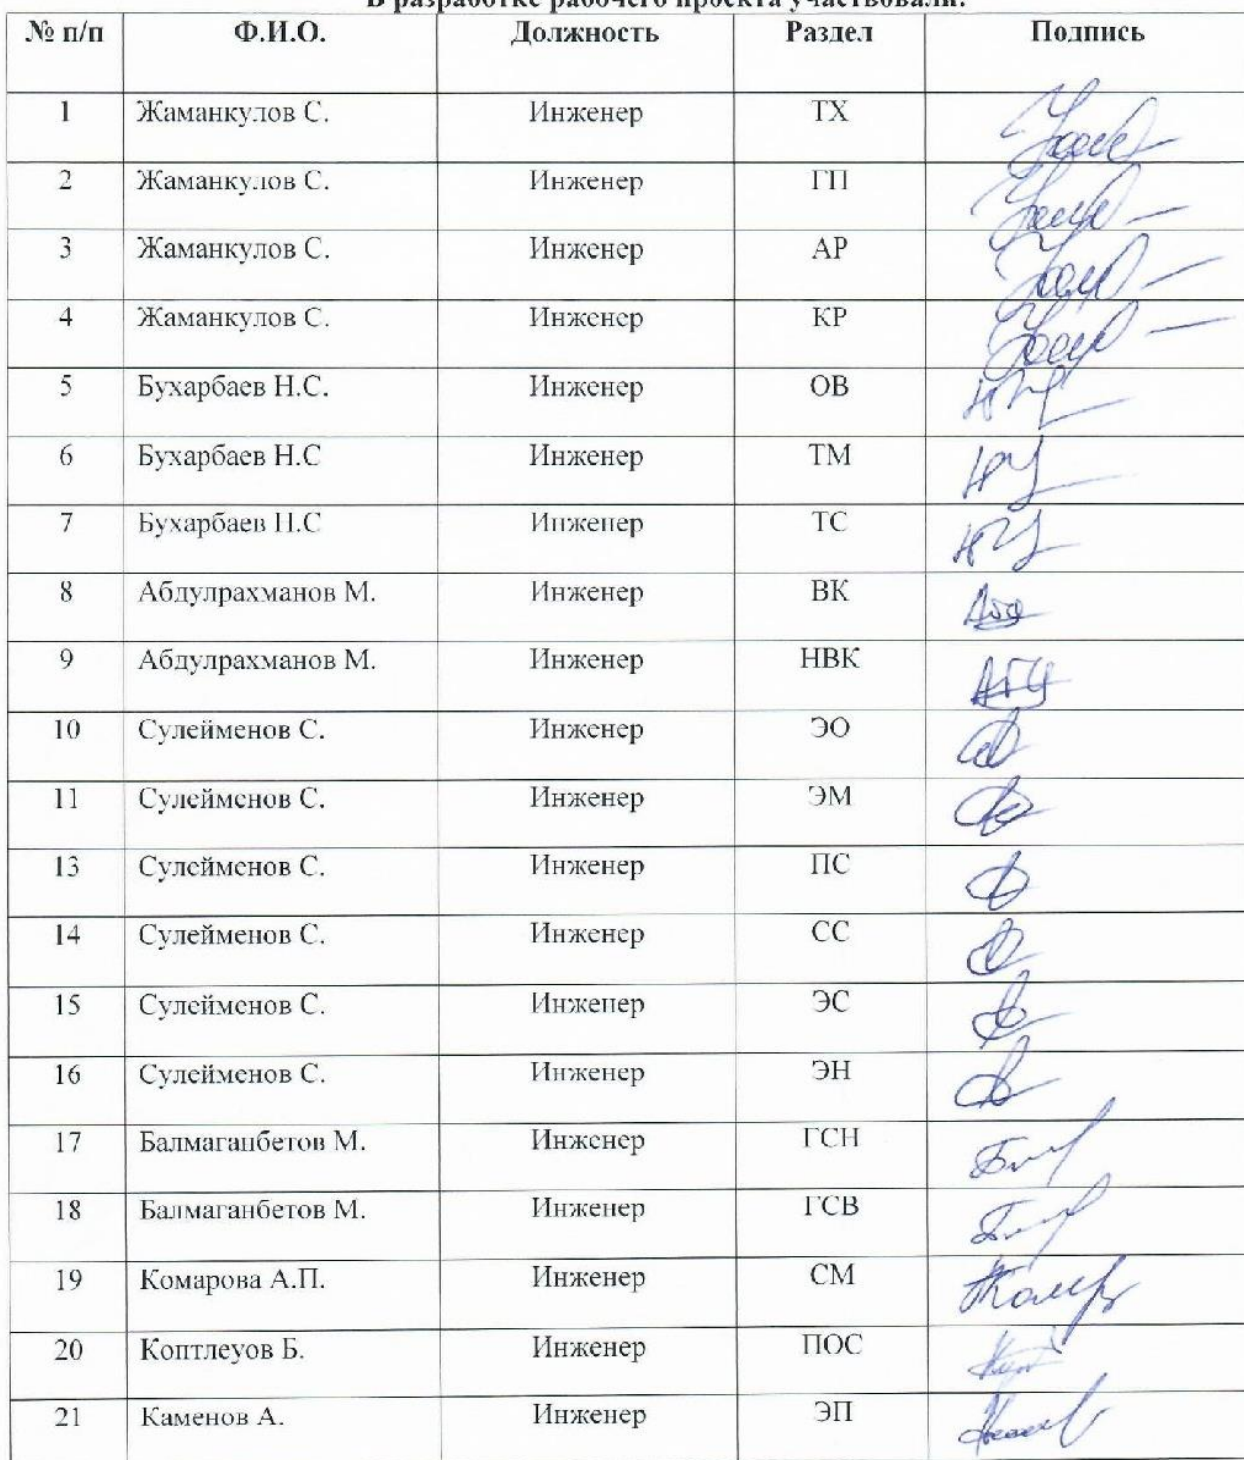 В разработке рабочего проекта участвовали:
№ п/п Ф.И.О. Должность Раздел Подпись
1 Жаманкулов С. Инженер ТХ
2 Жаманкулов С. Инженер ГП
3 Жаманкулов С. Инженер АР
4 Жаманкулов С. Инженер КР
5 Бухарбаев Н.С. Инженер ОВ
6 Бухарбаев Н.С Инженер ТМ
7 Бухарбаев Н.С Инженер ТС
8 Абдулрахманов М. Инженер ВК
9 Абдулрахманов М. Инженер НВК
10 Сулейменов С. Инженер ЭО
11 Сулейменов С. Инженер ЭМ
13 Сулейменов С. Инженер ПС
14 Сулейменов С. Инженер СС
15 Сулейменов С. Инженер ЭС
16 Сулейменов С. Инженер ЭН
17 Балмаганбетов М. Инженер ГСН
18 Балмаганбетов М. Инженер ГСВ
19 Комарова А.П. Инженер СМ
20 Коптлеуов Б. Инженер ПОС
21 Каменов А. Инженер ЭП